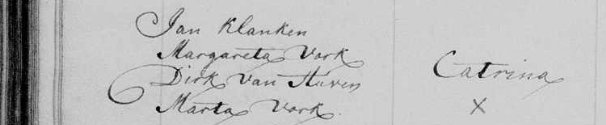 Jan Klanken
Margareta Vork
Dirk van Huven
Marta Vork.
Catrina
X